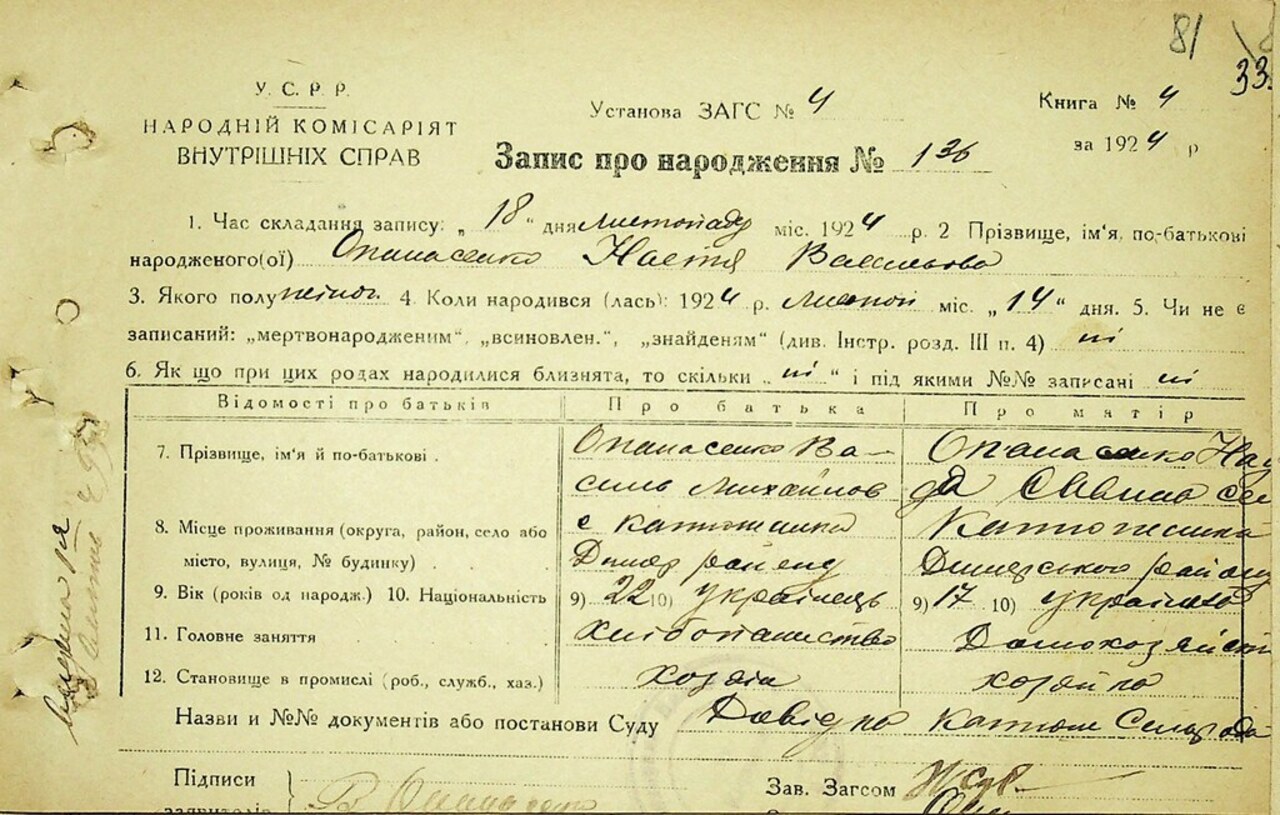 81
33
У. С. Р. Р.
НАРОДНІЙ КОМІСАРІЯТ
ВНУТРІШНІХ СПРАВ
Установа ЗАГС № 4
Книга № 4
за 1924 р
Запис про народження № 136
1. Час складання запису: „ 18 “ дня листопаду міс. 1924 р. 2 Прізвище, ім'я, по-батькові
народженого(ої) Опанасенко Настя Васильова
3. Якого полу жіноч. 4. Коли народився (лась): 1924 р. листоп міс. „ 14 “ дня. 5. Чи не є
записаний: „мертвонародженим“, „всиновлен.“, „знайденям“ (див. Інстр. розд. III п. 4) ні
6. Як що при цих родах народилися близнята, то скільки „ ні “ і під якими №№ записані ні
Відомості про батьків Про батька Про матір
7. Прізвище, ім'я й по-батькові . Опанасенко Ва- Опанасенко
силь Михайлов
8. Місце проживання (округа, район, село або с
місто, вулиця, № будинку) . . Димер району Димерського району
9. Вік (років од народж.) 10. Національність 9) 22 10) українець 9) 17 10) українка
11. Головне заняття . . Хлібопашество Домохозяйств
12. Становище в промислі (роб., служб., хаз.) хозяін хозяйка
Назви и №№ документів або постанови Суду Довідка Катюж Сельради
Підписи
заявників
В Опанасенко
Зав. Загсом